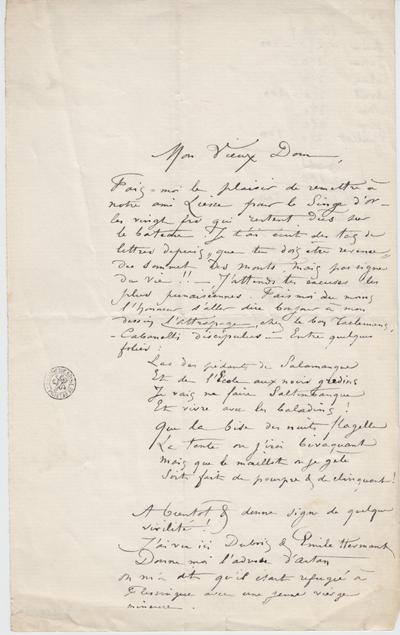 Mon Vieux Dom,
Fais-moi le plaisir de remettre à
notre ami Liesse pour le Singe d'or
les vingt frs qui restent dûs sur
le Je t'ai écrit des tas de
lettres depuis, que tu dois être revenu
des sommet des monts. Mais pas signe
de vie !! J'attends tes excuses les
plus Fais moi du moins
l'honneur d'aller dire bonjour à mon
dessin L'attrapage, chez le bon
Entre quelques
folies :
Las des pédants de Salamanque
Et de l'École aux noirs gradins
Je vais me faire Saltimbanque
Et vivre avec les baladins !
Que la bise des nuits flagelle
La tente où j'irai bivaquant
Mais que le maillot où je gèle
Soit fait de pourpre & de clinquant !
A bientôt & donne signe de quelque
civilité !
J'ai vu ici Dubois & Émile Hermant
Donne moi l'adresse d'Artan
on m'a dit qu'il était refugié à
Flessingue avec une jeune vierge
mineure.